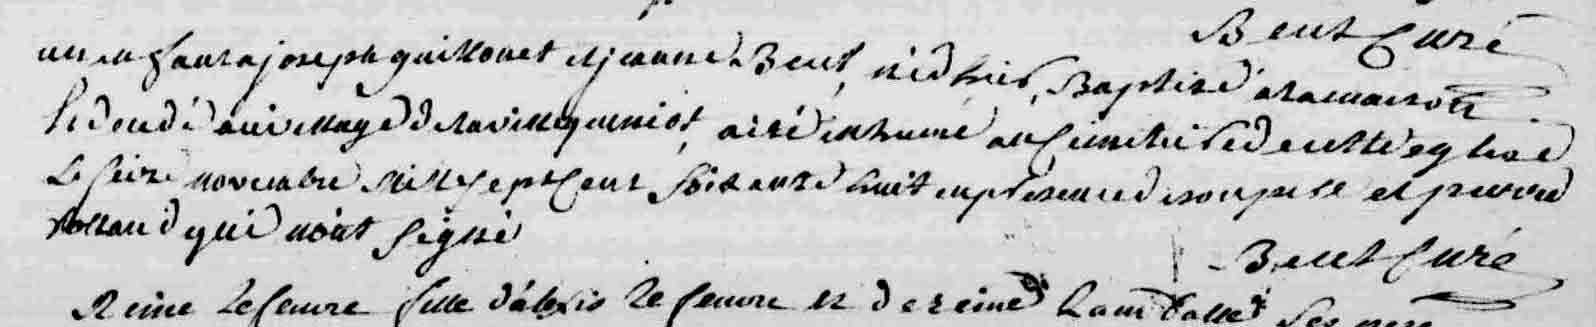 Beut Curé
un enfant a joseph guillouet et jeanne Beut, né d'hier, Baptisé a la maison
decedé au village de la ville gueniot, a été inhumé au cimetiere de cette eglise
le seize novembre mil sept cent soixante huit en presence de son pere et pierre
rolland qui n'ont signé
Beut Curé
Reine Lefeuvre fille d'alexis Lefeuvre et de reine ses